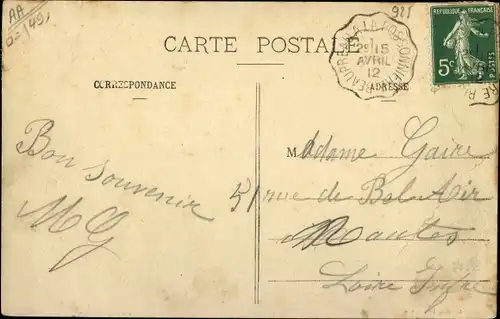 AA
921
CARTE POSTALE
BEAUPREAU A LA POSSONNIERE
2E 15
AVRIL
12
REPUBLIQUE FRANÇAISE
POSTES
5c
CORRESPONDANCE
ADRESSE
Bon souvenir
MG
Madame Gaire
51 rue de Bel Air
Nantes
Loire Infre